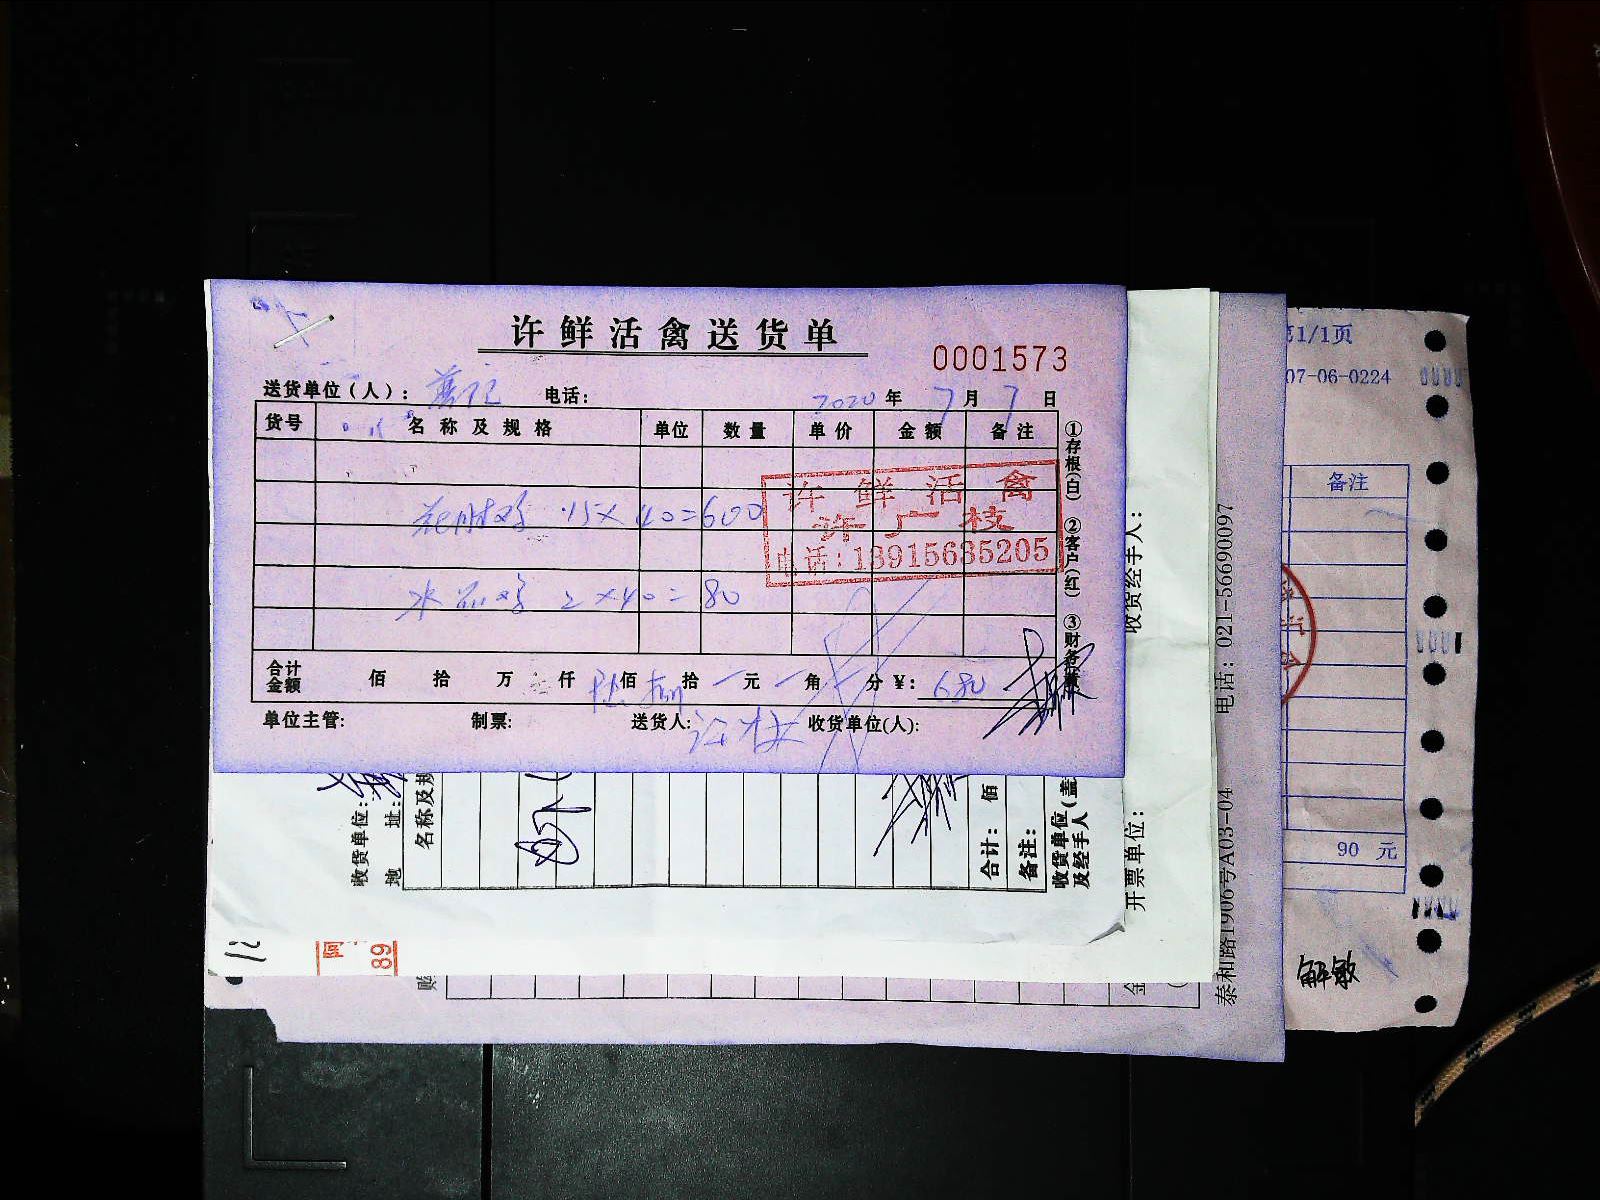 许鲜活禽送货单
0001573
送货单位（人）： 电话： 2020 年 7 月 7 日
货号 名称及规格 单位 数量 单价 金额 备注
15 × 40 = 600
水晶鸡 2 × 40 = 80
许鲜活禽
许广枝
电话：13915635205
合计金额 佰 拾 万 仟 陆 佰 捌 拾 元 角 分 ¥: 680
单位主管: 制票: 送货人: 收货单位(人):
①存根(白) ②客户(红) ③财务
收货单位:
地 址:
名称及规
合计: 佰
备注:
收货单位(盖
及经手人
收货经手人:
开票单位:
12
阿
89
泰和路1906号A03-04 电话: 021-56690097
第1/1页
07-06-0224
备注
90 元